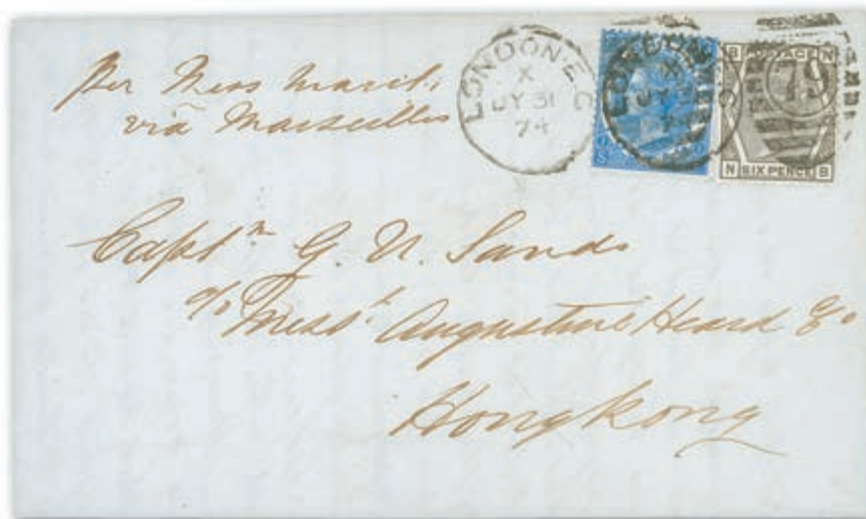 Per Mess Marit:
via Marseilles
LONDON·E·C
X
JY 31
74
LONDON E C
X
JY
79
B POSTAGE N
N SIX PENCE B
Capt.n G. U. Sands
c/o Mess.s Augustine Heard & Co
Hongkong